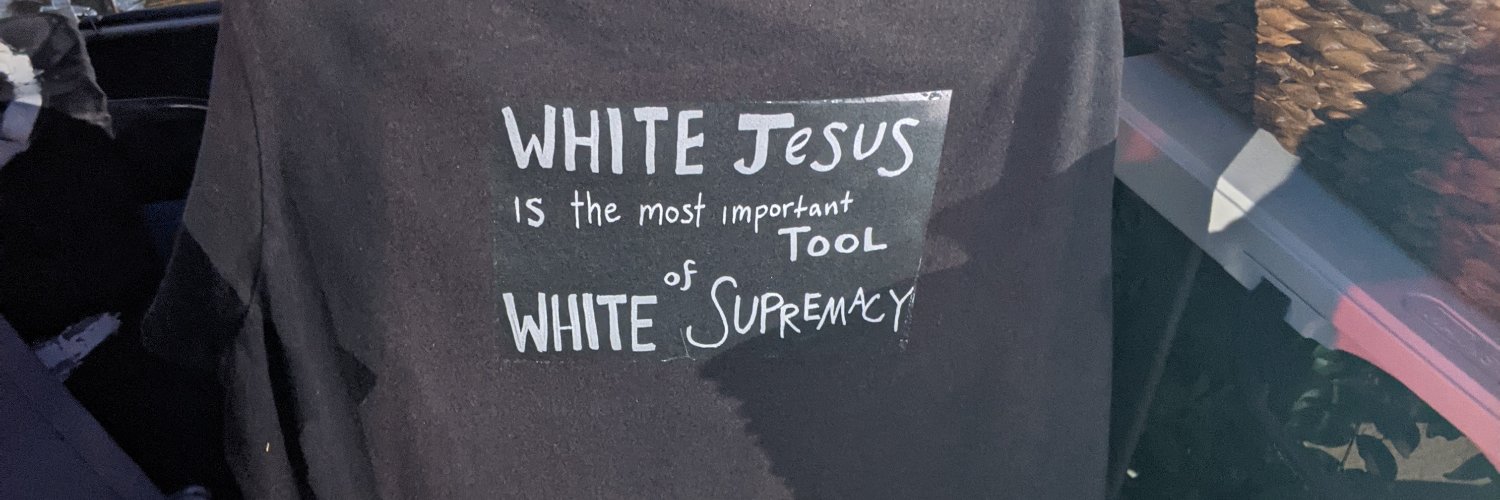 WHITE Jesus
IS the most important
TOOL
of
WHITE SUPREMACY